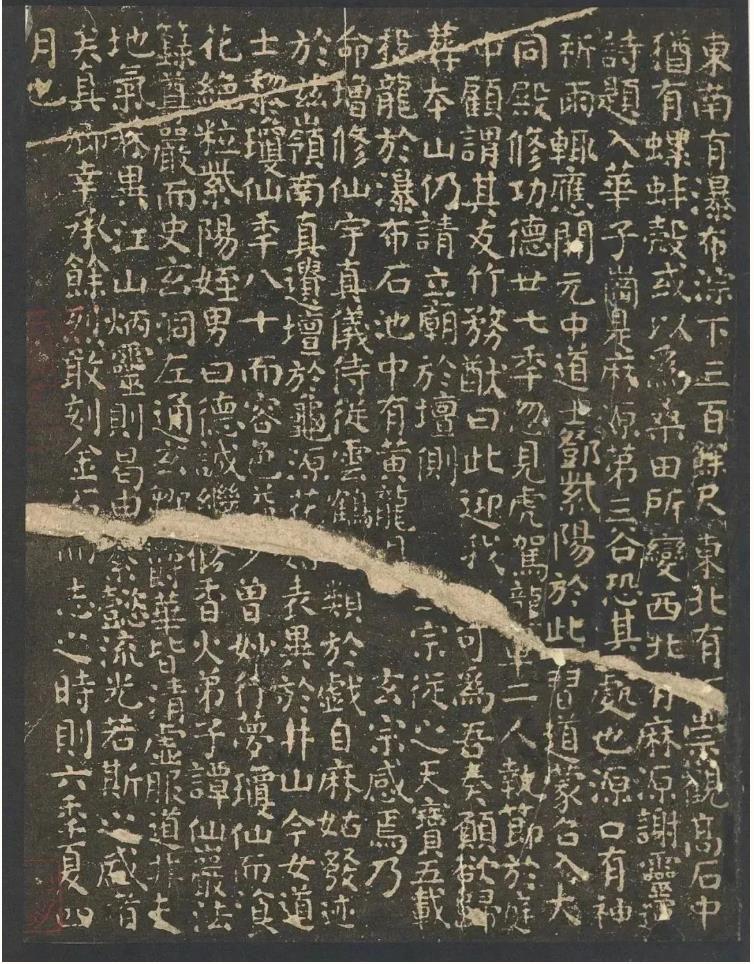 東南有瀑布淙下三百餘尺東北有崇觀高石中
猶有螺蚌殼或以爲桑田所變西北有麻源謝靈運
詩題入華子崗是麻源第三谷恐其處也源口有神
祈雨輒應開元中道士鄧紫陽於此習道蒙召入大
同殿修功德廿七秊忽見虎駕龍車二人執節於庭
中顧謂其友竹務猷曰此迎我可爲吾奏願欲歸
葬本山仍請立廟於壇側宗從之天寶五載
投龍於瀑布石池中有黃龍玄宗感焉乃
命增修仙宇真儀侍從雲鶴類於戲自麻姑發迹
於茲嶺南真遺壇於龜源花表異於井山今女道
士黎瓊仙秊八十而容色少曾妙行夢瓊仙而飡
花絕粒紫陽姪男曰德誠繼修香火弟子譚仙巖法
籙尊嚴而史玄洞左通玄鬱華皆清虛服道非夫
地氣殊異江山炳靈則曷由纂懿流光若斯之盛者
矣真卿幸承餘烈敢刻金石而志之時則六秊夏四
月也